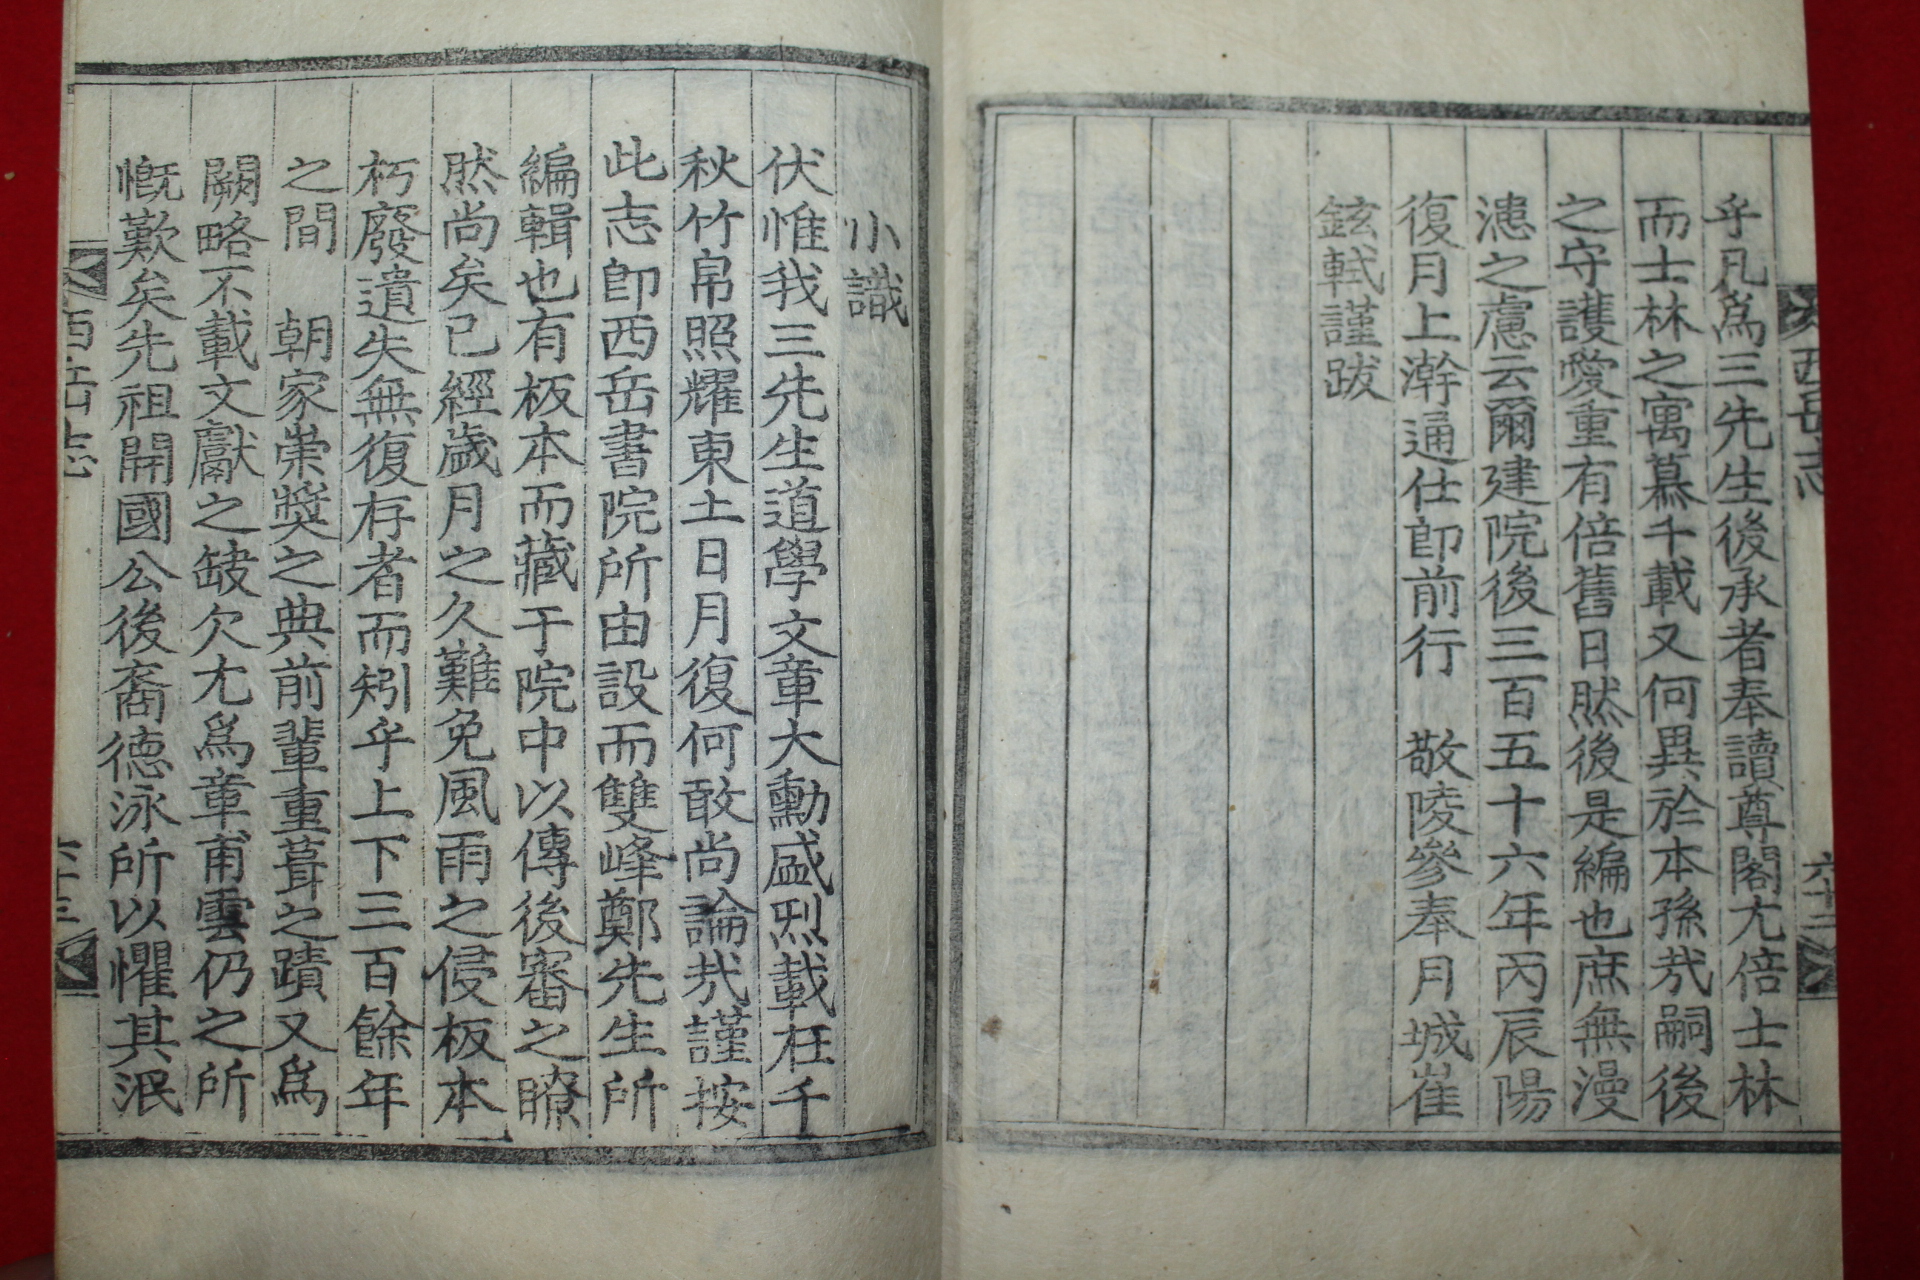 乎凡爲三先生後承者奉讀尊閣尤倍士林
而士林之寓慕千載又何異於本孫㢤嗣後
之守護愛重有倍舊日然後是編也庶無漫
漶之慮云爾建院後三百五十六年丙辰陽
復月上澣通仕郎前行 敬陵參奉月城崔
鉉軾謹跋
西岳志 六十二
小識
伏惟我三先生道學文章大勳盛烈載在千
秋竹帛照耀東土日月復何敢尚論㢤謹按
此志卽西岳書院所由設而雙峰鄭先生所
編輯也有板本而藏于院中以傳後審之瞭
然尚矣已經歲月之久難免風雨之侵板本
朽廢遺失無復存者而矧乎上下三百餘年
之間 朝家崇奬之典前輩重葺之蹟又爲
闕略不載文獻之缺欠尤爲章甫雲仍之所
慨歎矣先祖開國公後裔德泳所以懼其泯
西岳志 六十三